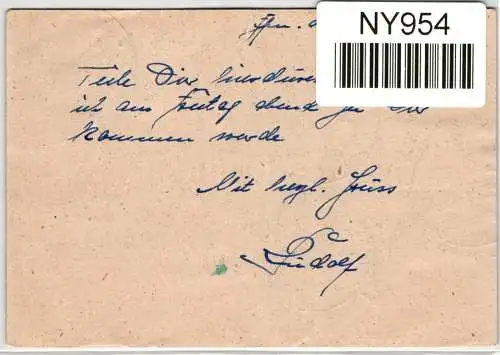 NY954
Teile Dir hierdurch
ich am Freitag abend zu Dir
kommen werde
Mit herzl. Gruss
Rudolf